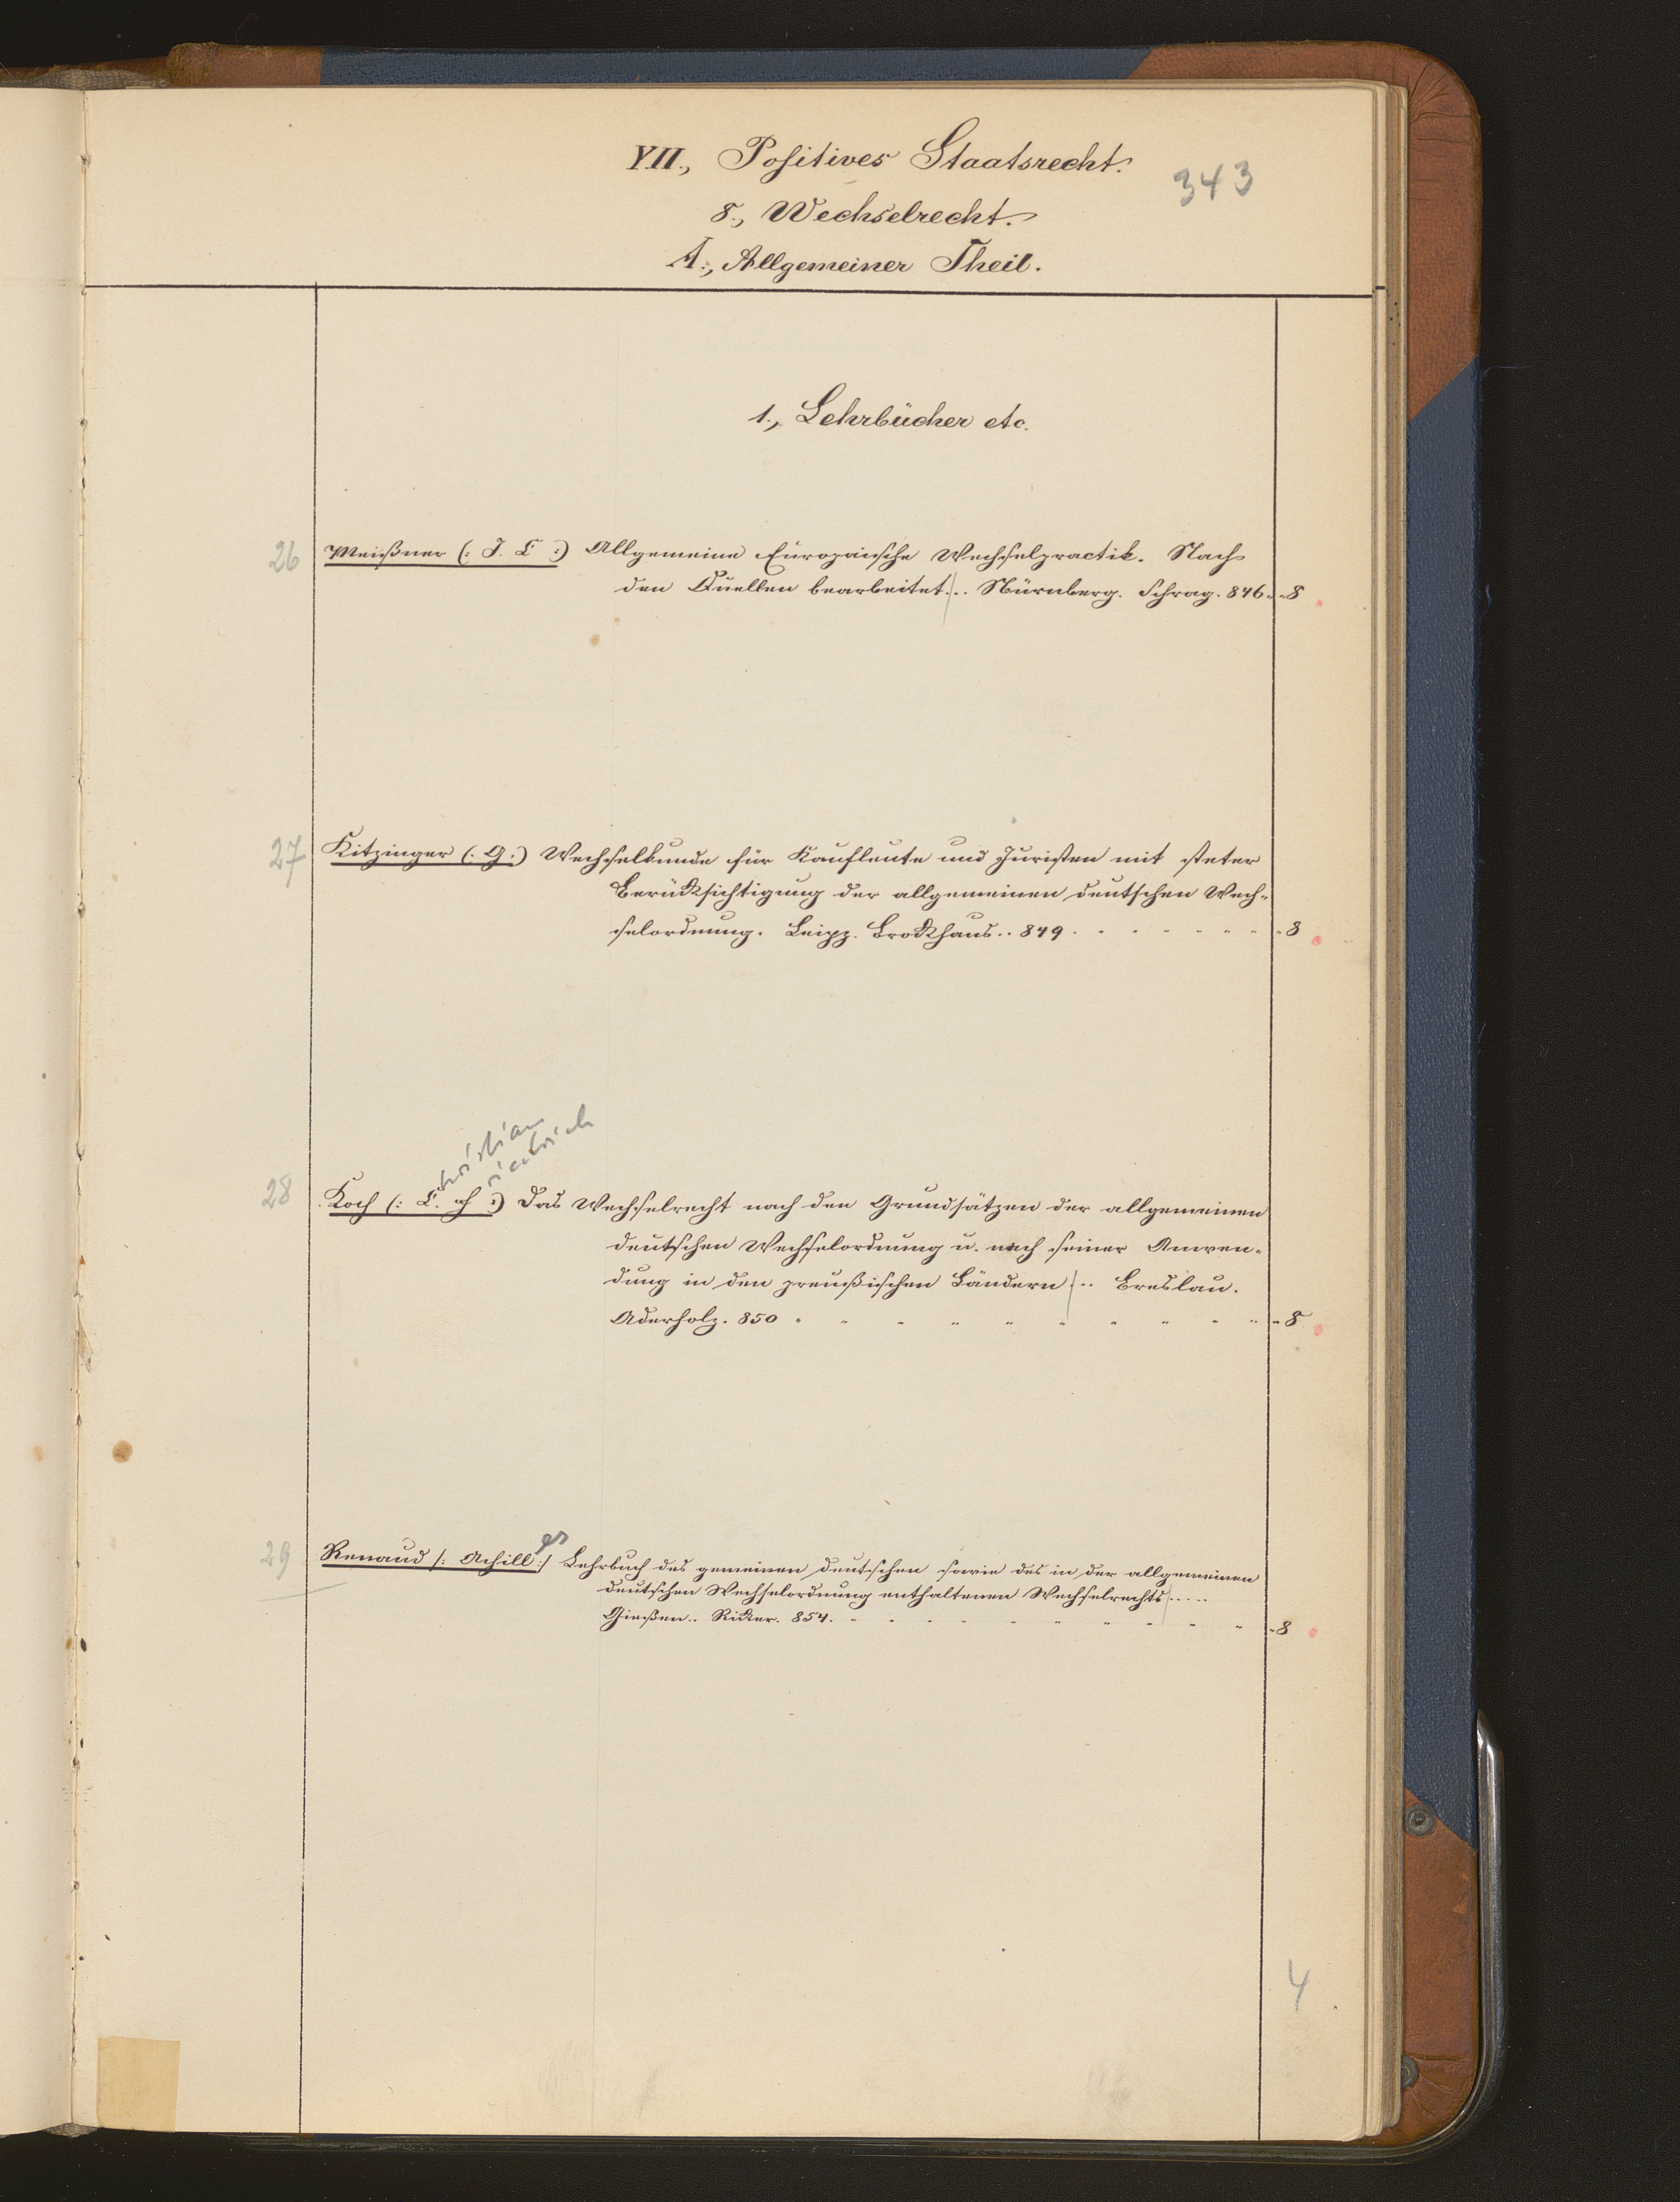 VII., Positives Staatsrecht.
343
8., Wechselrecht.
A., Allgemeiner Theil.
1., Lehrbücher etc.
26 Meißner (: J. C :) Allgemeine Europäische Wechselpractik. Nach
den Quellen bearbeitet. .. Nürnberg. Schrag. 846. " 8
27 Kitzinger (: G :) Wechselkunde für Kaufleute und Juristen mit steter
Berücksichtigung der allgemeinen deutschen Wech-
selordnung. Leipz. Brockhaus .. 849 . " 8
hristian
riedrich
28 Koch (: C. F :) Das Wechselrecht nach den Grundsätzen der allgemeinen
deutschen Wechselordnung u. nach seiner Anwen-
dung in den preußischen Ländern .. Breslau.
Aderholz. 850 " 8
es
29 Renaud /: Achill :/ Lehrbuch des gemeinen deutschen sowie des in der allgemeinen
deutschen Wechselordnung enthaltenen Wechselrechts .....
Gießen .. Ricker. 854. " 8
4